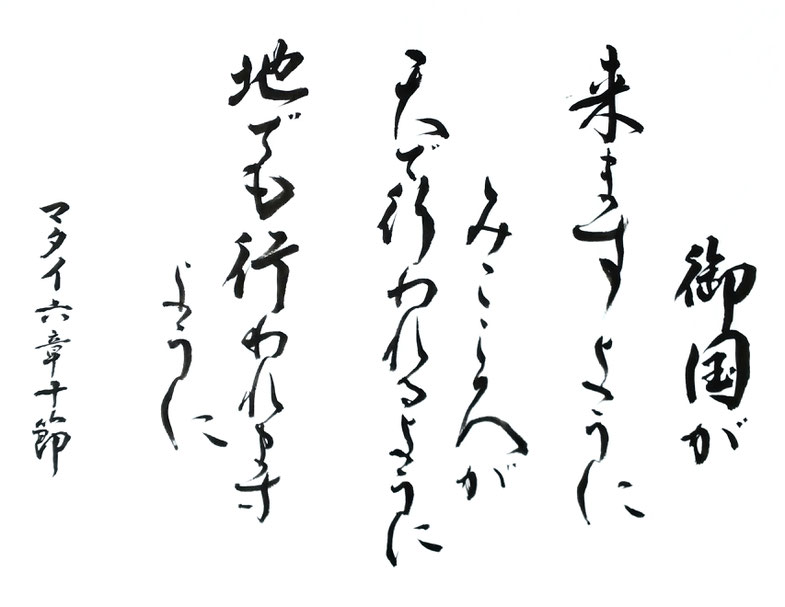 御国が
来ますように
みこころが
天で行われるように
地でも行われます
ように
マタイ六章十節